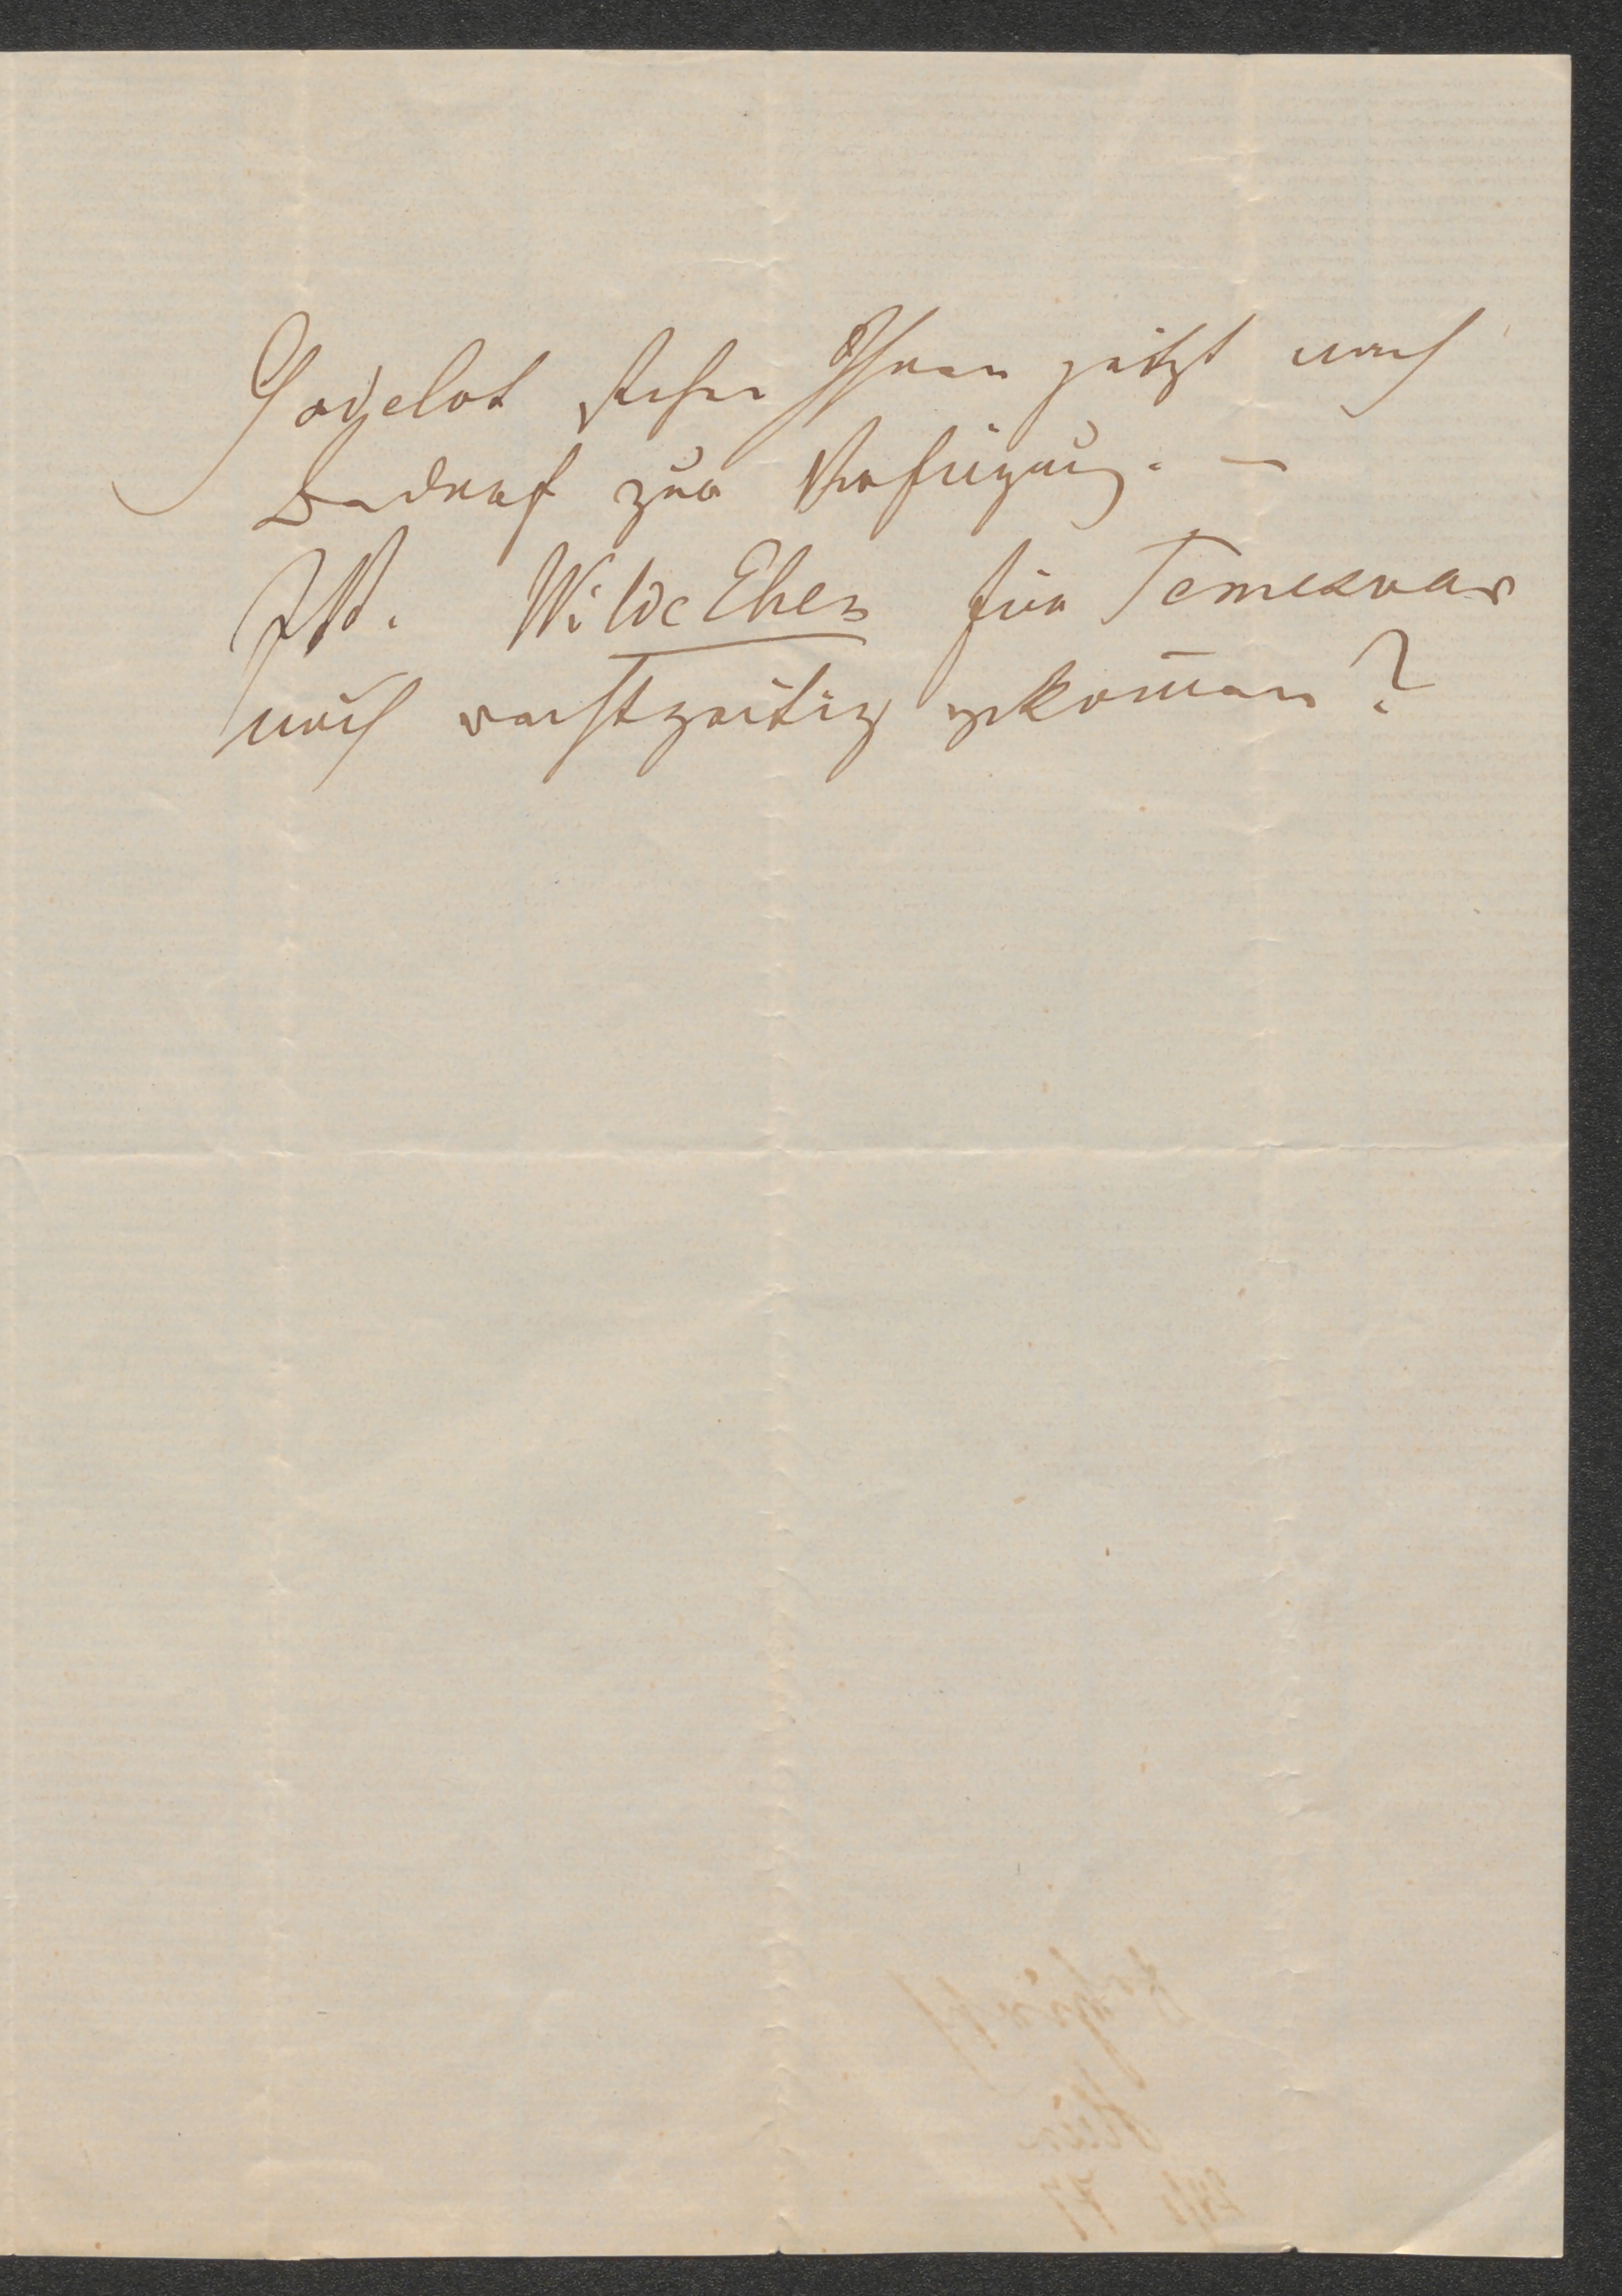 Gogelot stehen Ihnen jetzt nach
Bedarf zur Verfügung. —
Ist Wilde Ehen für Temesvar
noch rechtzeitig gekom̄en?